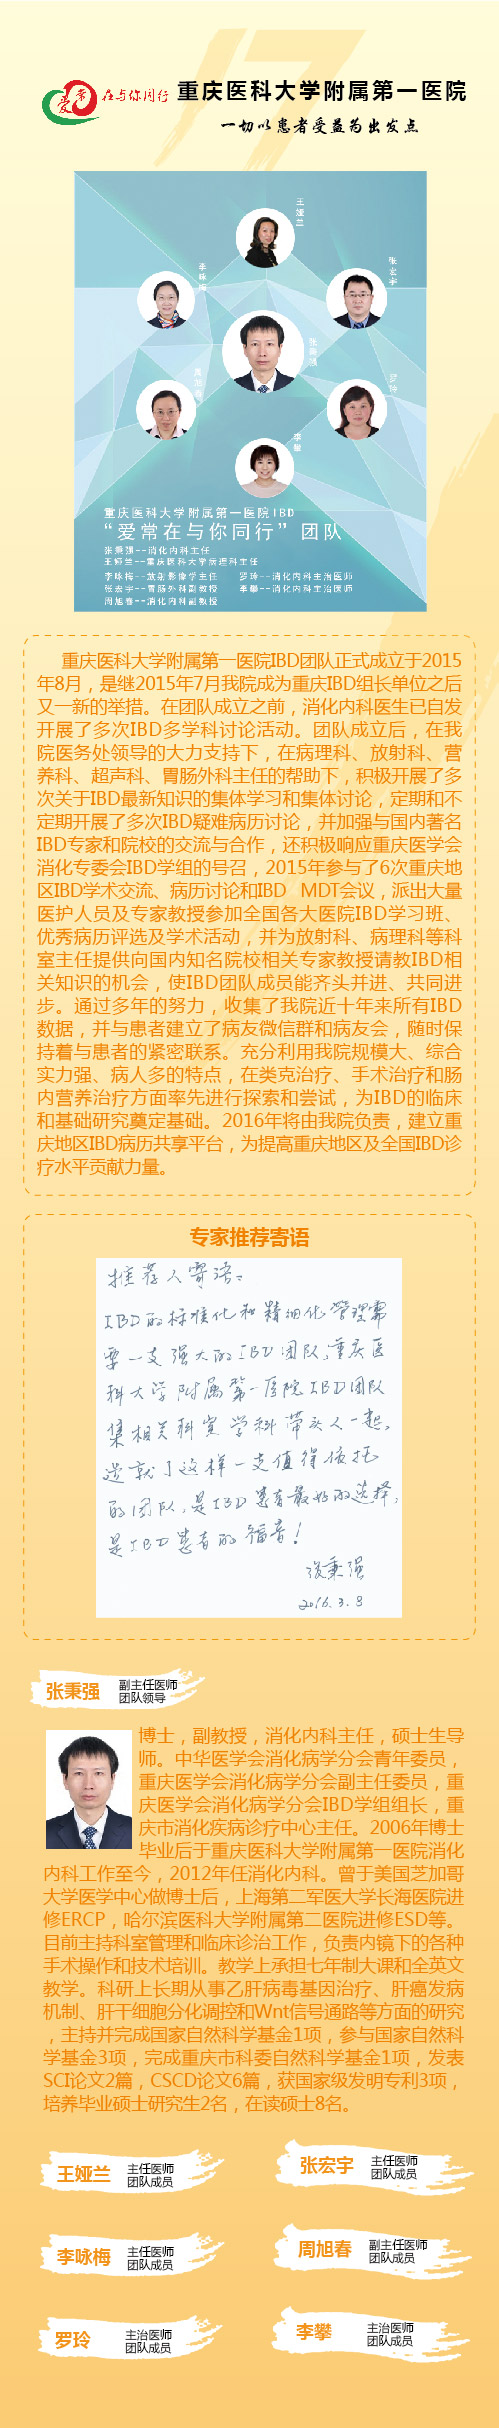 17
爱常 在与你同行
重庆医科大学附属第一医院
一切以患者受益为出发点
王娅兰
李咏梅
张宏宇
张秉强
周旭春
罗玲
李攀
重庆医科大学附属第一医院IBD
“爱常在与你同行”团队
张秉强--消化内科主任
王娅兰--重庆医科大学病理科主任
李咏梅--放射影像学主任 罗玲--消化内科主治医师
张宏宇--胃肠外科副教授 李攀--消化内科主治医师
周旭春--消化内科副教授
重庆医科大学附属第一医院IBD团队正式成立于2015
年8月，是继2015年7月我院成为重庆IBD组长单位之后
又一新的举措。在团队成立之前，消化内科医生已自发
开展了多次IBD多学科讨论活动。团队成立后，在我
院医务处领导的大力支持下，在病理科、放射科、营
养科、超声科、胃肠外科主任的帮助下，积极开展了多
次关于IBD最新知识的集体学习和集体讨论，定期和不
定期开展了多次IBD疑难病历讨论，并加强与国内著名
IBD专家和院校的交流与合作，还积极响应重庆医学会
消化专委会IBD学组的号召，2015年参与了6次重庆地
区IBD学术交流、病历讨论和IBD MDT会议，派出大量
医护人员及专家教授参加全国各大医院IBD学习班、
优秀病历评选及学术活动，并为放射科、病理科等科
室主任提供向国内知名院校相关专家教授请教IBD相
关知识的机会，使IBD团队成员能齐头并进、共同进
步。通过多年的努力，收集了我院近十年来所有IBD
数据，并与患者建立了病友微信群和病友会，随时保
持着与患者的紧密联系。充分利用我院规模大、综合
实力强、病人多的特点，在类克治疗、手术治疗和肠
内营养治疗方面率先进行探索和尝试，为IBD的临床
和基础研究奠定基础。2016年将由我院负责，建立重
庆地区IBD病历共享平台，为提高重庆地区及全国IBD诊
疗水平贡献力量。
专家推荐寄语
推荐人寄语：
IBD的标准化和精细化管理需
要一支强大的IBD团队，重庆医
科大学附属第一医院IBD团队
集相关科室学科带头人一起，
造就了这样一支值得依托
的团队，是IBD患者最好的选择，
是IBD患者的福音！
张秉强
2016.3.8
张秉强 副主任医师
团队领导
博士，副教授，消化内科主任，硕士生导
师。中华医学会消化病学分会青年委员，
重庆医学会消化病学分会副主任委员，重
庆医学会消化病学分会IBD学组组长，重
庆市消化疾病诊疗中心主任。2006年博士
毕业后于重庆医科大学附属第一医院消化
内科工作至今，2012年任消化内科。曾于美国芝加哥
大学医学中心做博士后，上海第二军医大学长海医院进
修ERCP，哈尔滨医科大学附属第二医院进修ESD等。
目前主持科室管理和临床诊治工作，负责内镜下的各种
手术操作和技术培训。教学上承担七年制大课和全英文
教学。科研上长期从事乙肝病毒基因治疗、肝癌发病
机制、肝干细胞分化调控和Wnt信号通路等方面的研究
，主持并完成国家自然科学基金1项，参与国家自然科
学基金3项，完成重庆市科委自然科学基金1项，发表
SCI论文2篇，CSCD论文6篇，获国家级发明专利3项，
培养毕业硕士研究生2名，在读硕士8名。
王娅兰 主任医师
团队成员
张宏宇 主任医师
团队成员
李咏梅 主任医师
团队成员
周旭春 副主任医师
团队成员
罗玲 主治医师
团队成员
李攀 主治医师
团队成员